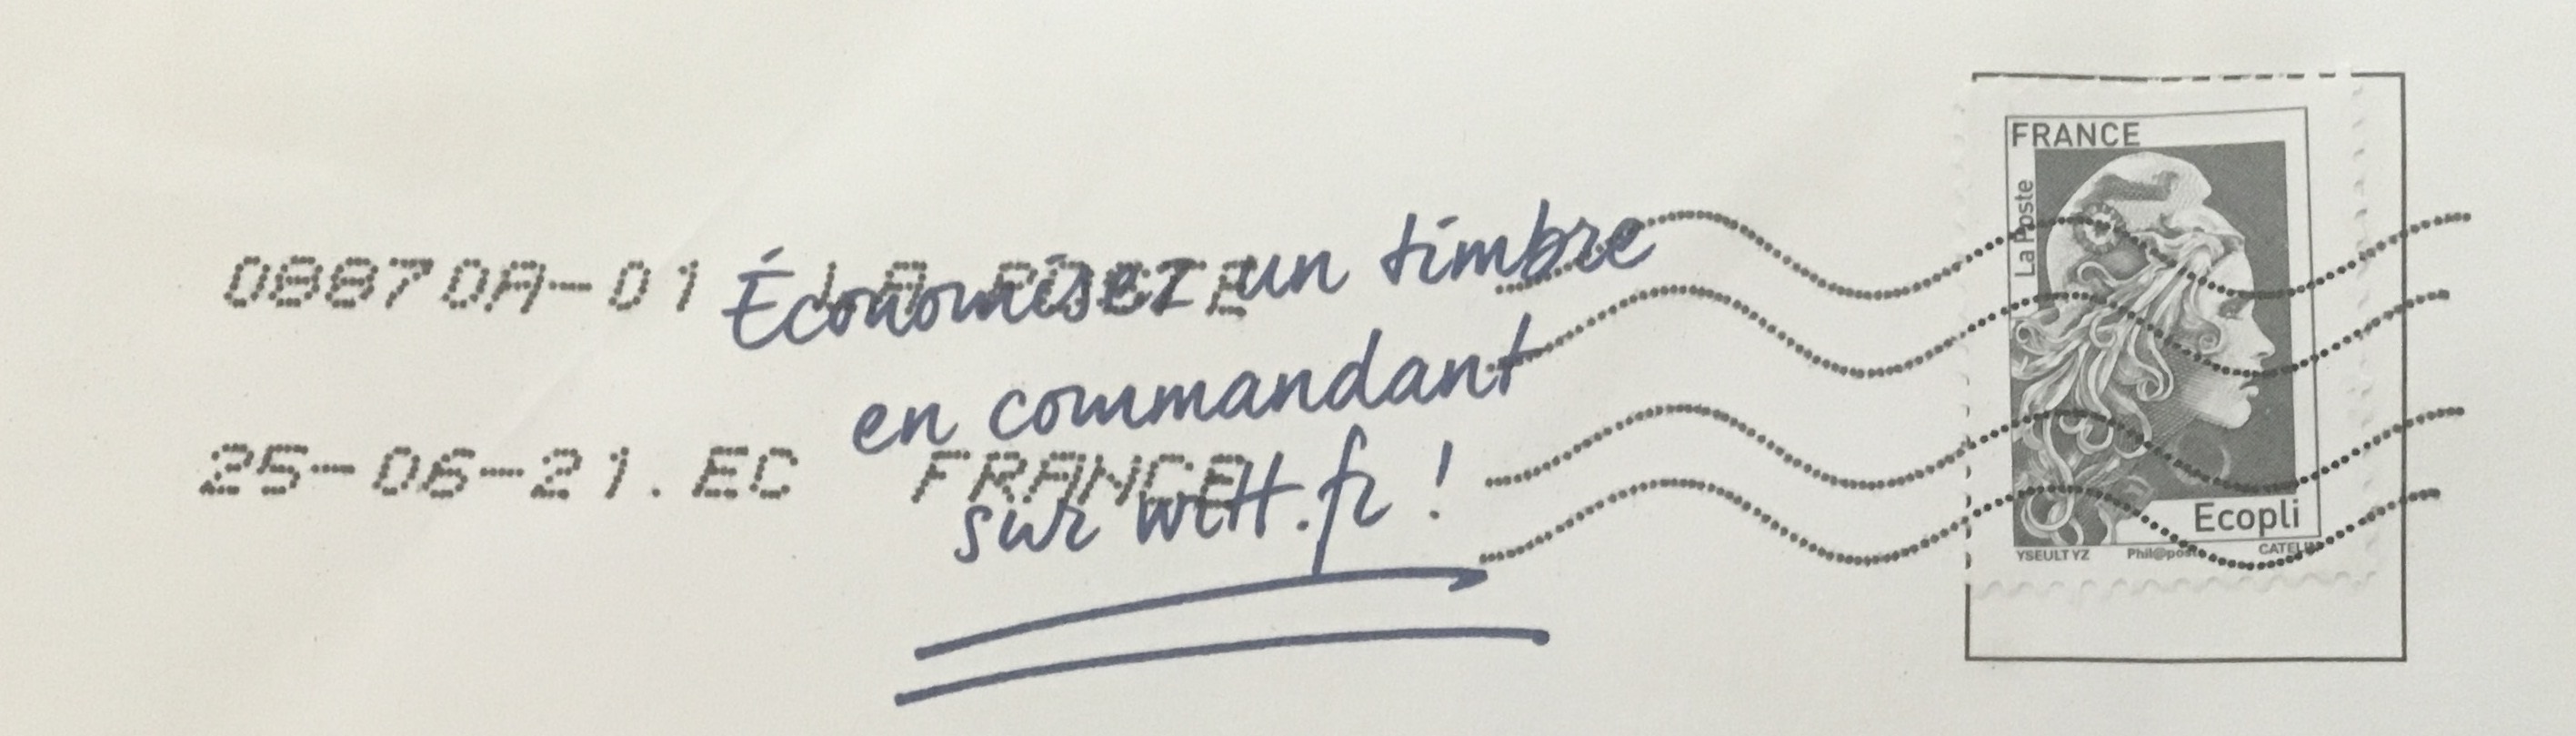 08870A-01 LA POSTE
25-06-21.EC FRANCE
Économisez un timbre
en commandant
sur witt.fr !
FRANCE
La Poste
Ecopli
YSEULT YZ Phil@poste CATELIN